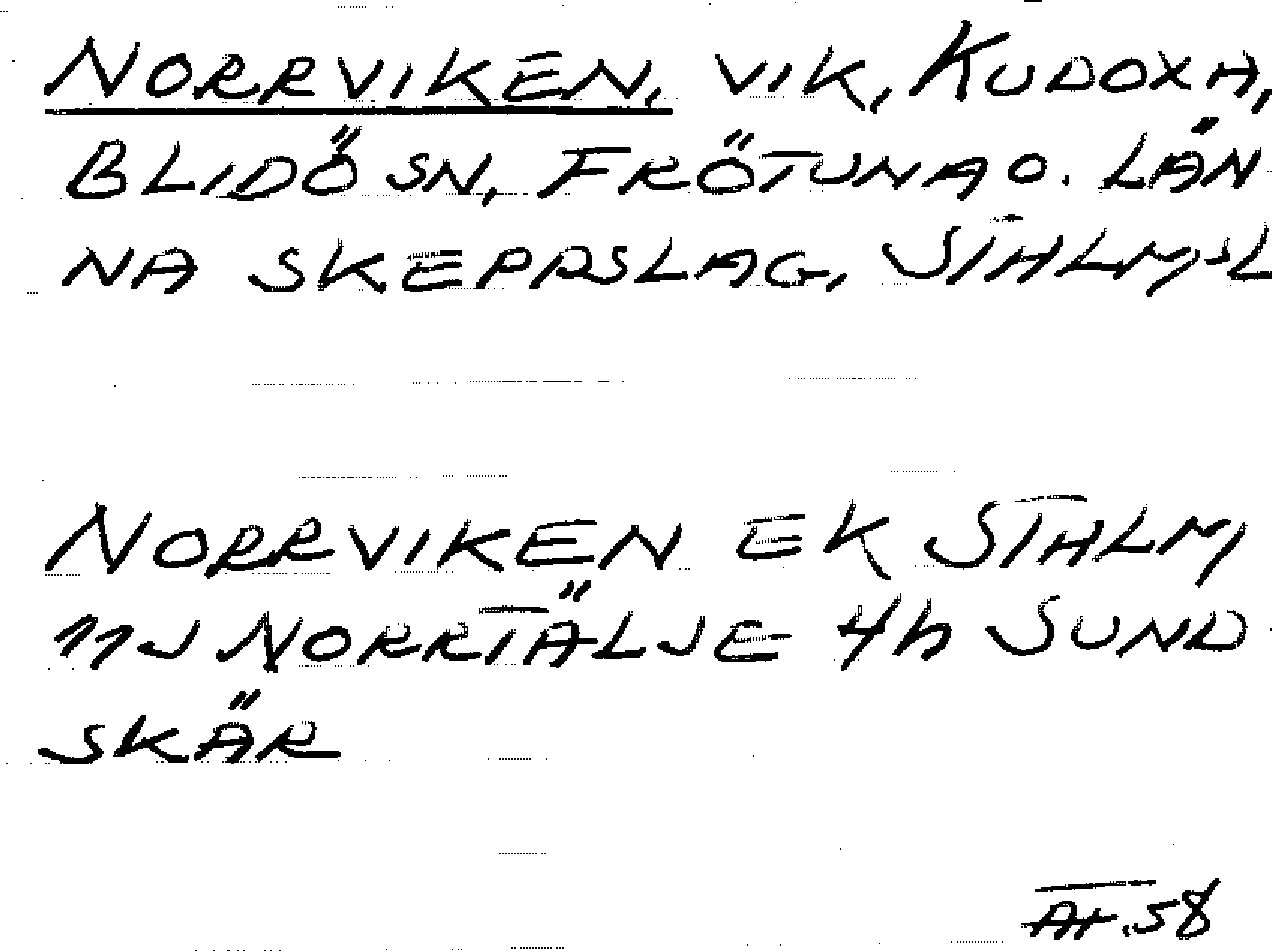 NORRVIKEN, VIK, KUDOXA,
BLIDÖ SN, FRÖTUNA O. LÄN
NA SKEPPSLAG, STHLMS L
NORRVIKEN EK STHLM
11J NORRTÄLJE 4h SUND
SKÄR
58